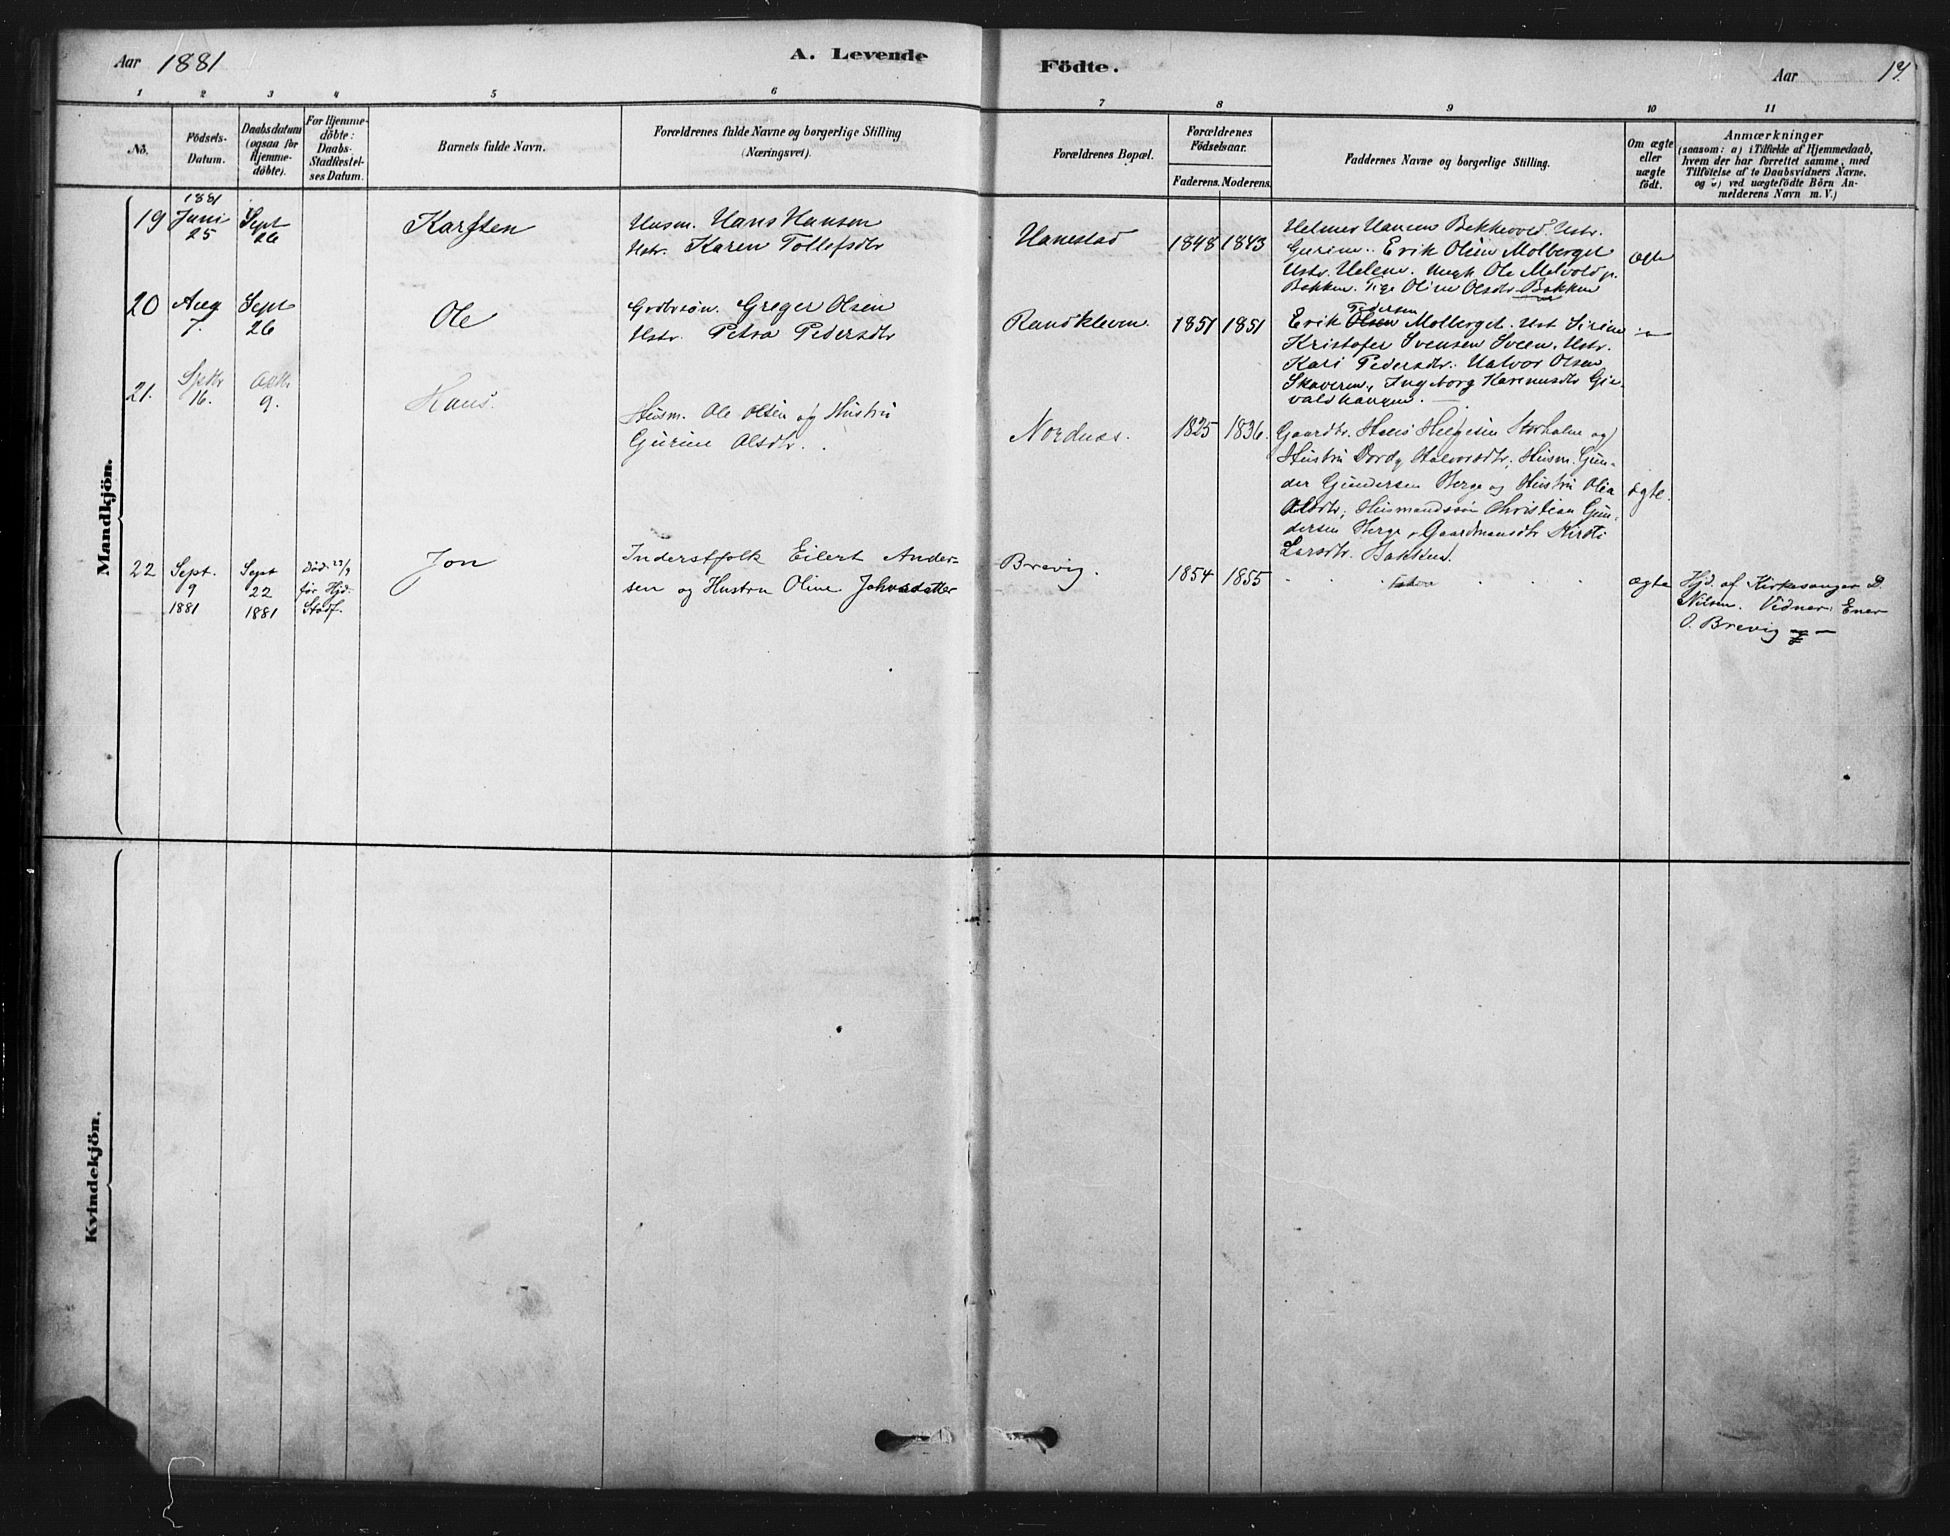 Aar 1881
A. Levende
Födte.
Aar
14.
1 2 3 4 5 6 7 8 9 10 11
No.
Födsels-
Datum.
Daabsdatum
(ogsaa for
Hjemme-
döbte).
For Hjemme-
döbte:
Daabs-
Stadfæstel-
ses Datum.
Barnets fulde Navn.
Forældrenes fulde Navne og borgerlige Stilling
(Næringsvei).
Forældrenes Bopæl.
Forældrenes
Födselsaar.
Faderens. Moderens.
Faddernes Navne og borgerlige Stilling.
Om ægte
eller
uægte
födt.
Anmærkninger
(saasom: a) i Tilfælde af Hjemmedaab,
hvem der har forrettet samme, med
Tilföielse af to Daabsvidners Navne,
og b) ved uægtefödte Börn An-
melderens Navn m. V.)
Mandkjön.
1881
19
Juni
25
Sept
26
Karsten
Husm. Hans Hansen
Hstr. Karen Tollefsdtr
Hanestad
1848 1843
Helmer Hansen Bekkevold. Hstr.
Gurine. Erik Olsen Molberget
Hstr. Helene. Ungk Ole
Bakken. Pige Oline Olsdtr Bakken
ægte
20
Aug
7.
Sept
26
Ole
Gbrsøn. Greger Olsen
Hstr. Petra Pedersdtr
Randkleven.
1851 1851
Pedersen
Erik Olsen Molberget. Hst Sirine
Kristofer Svensen Sveen. Hstr.
Kari Pedersdtr. Halvor Olsen
Skaveren, Ingeborg Karenusdtr
21.
Septr
16.
Octr
9.
Hans.
Husm. Ole Olsen og Hustru
Gurine Olsdtr.
Nordnæs.
1825 1836.
Gaardbr. Hans Helgesen Storholm og
Hustru Dordy Halvorsdtr; Husm. Gun-
der Gundersen Berge og Hustru Olea
Olsdtr; Husmandssøn Christian Gun-
dersen Berge, Gaardmansdtr Kirsti
Larsdtr. Bakken.
ægte.
22
Sept.
9
1881
Sept
22
1881
Død 23/9
før Hjd.
Stadf.
Jon
Inderstfolk Eilert Ander-
sen og Hustru Oline Johnsdatter
Brevig.
1854 1855
ægte
Hjd. af Kirkesanger D.
Nilsen. Vidner: Ener
O. Brevig
Kvindekjön.